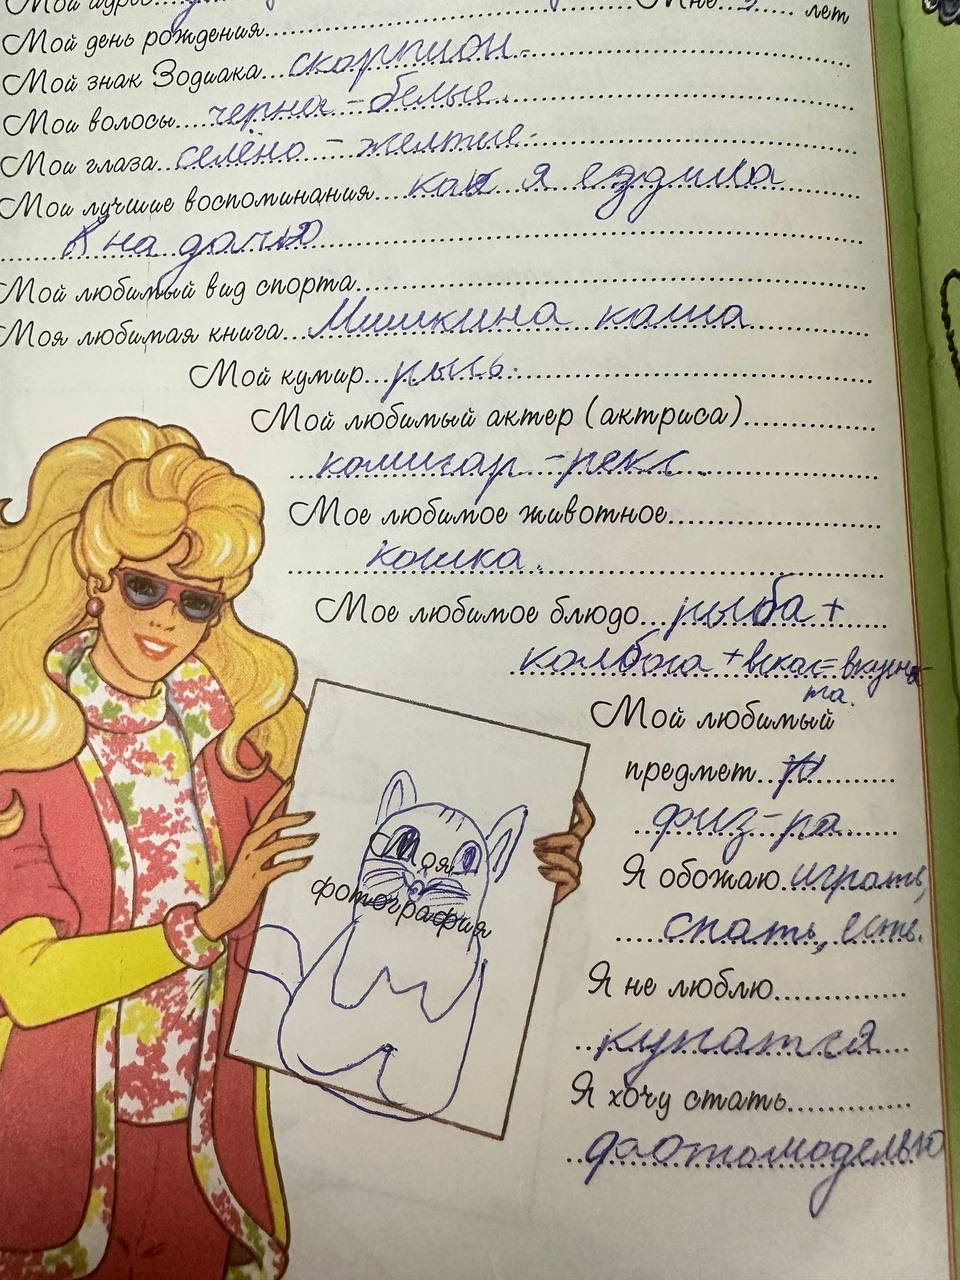 Мой адрес... Мне... лет
Мой день рождения
Мой знак Зодиака...скорпион.
Мои волосы...черна-белые.
Мои глаза...селёно-желтые.
Мои лучшие воспоминания...как я ездила
на дачю
Мой любимый вид спорта
Моя любимая книга...Мишкина каша
Мой кумир...рысь.
Мой любимый актер (актриса)
комисар-рекс.
Мое любимое животное
кошка.
Мое любимое блюдо...рыба+
колбаса+вскас=вкусно-
та.
Мой любимый
предмет
физ-ра
Я обожаю играть,
спать, есть.
Моя
фотография
Я не люблю
купатся
Я хочу стать
фотомоделью